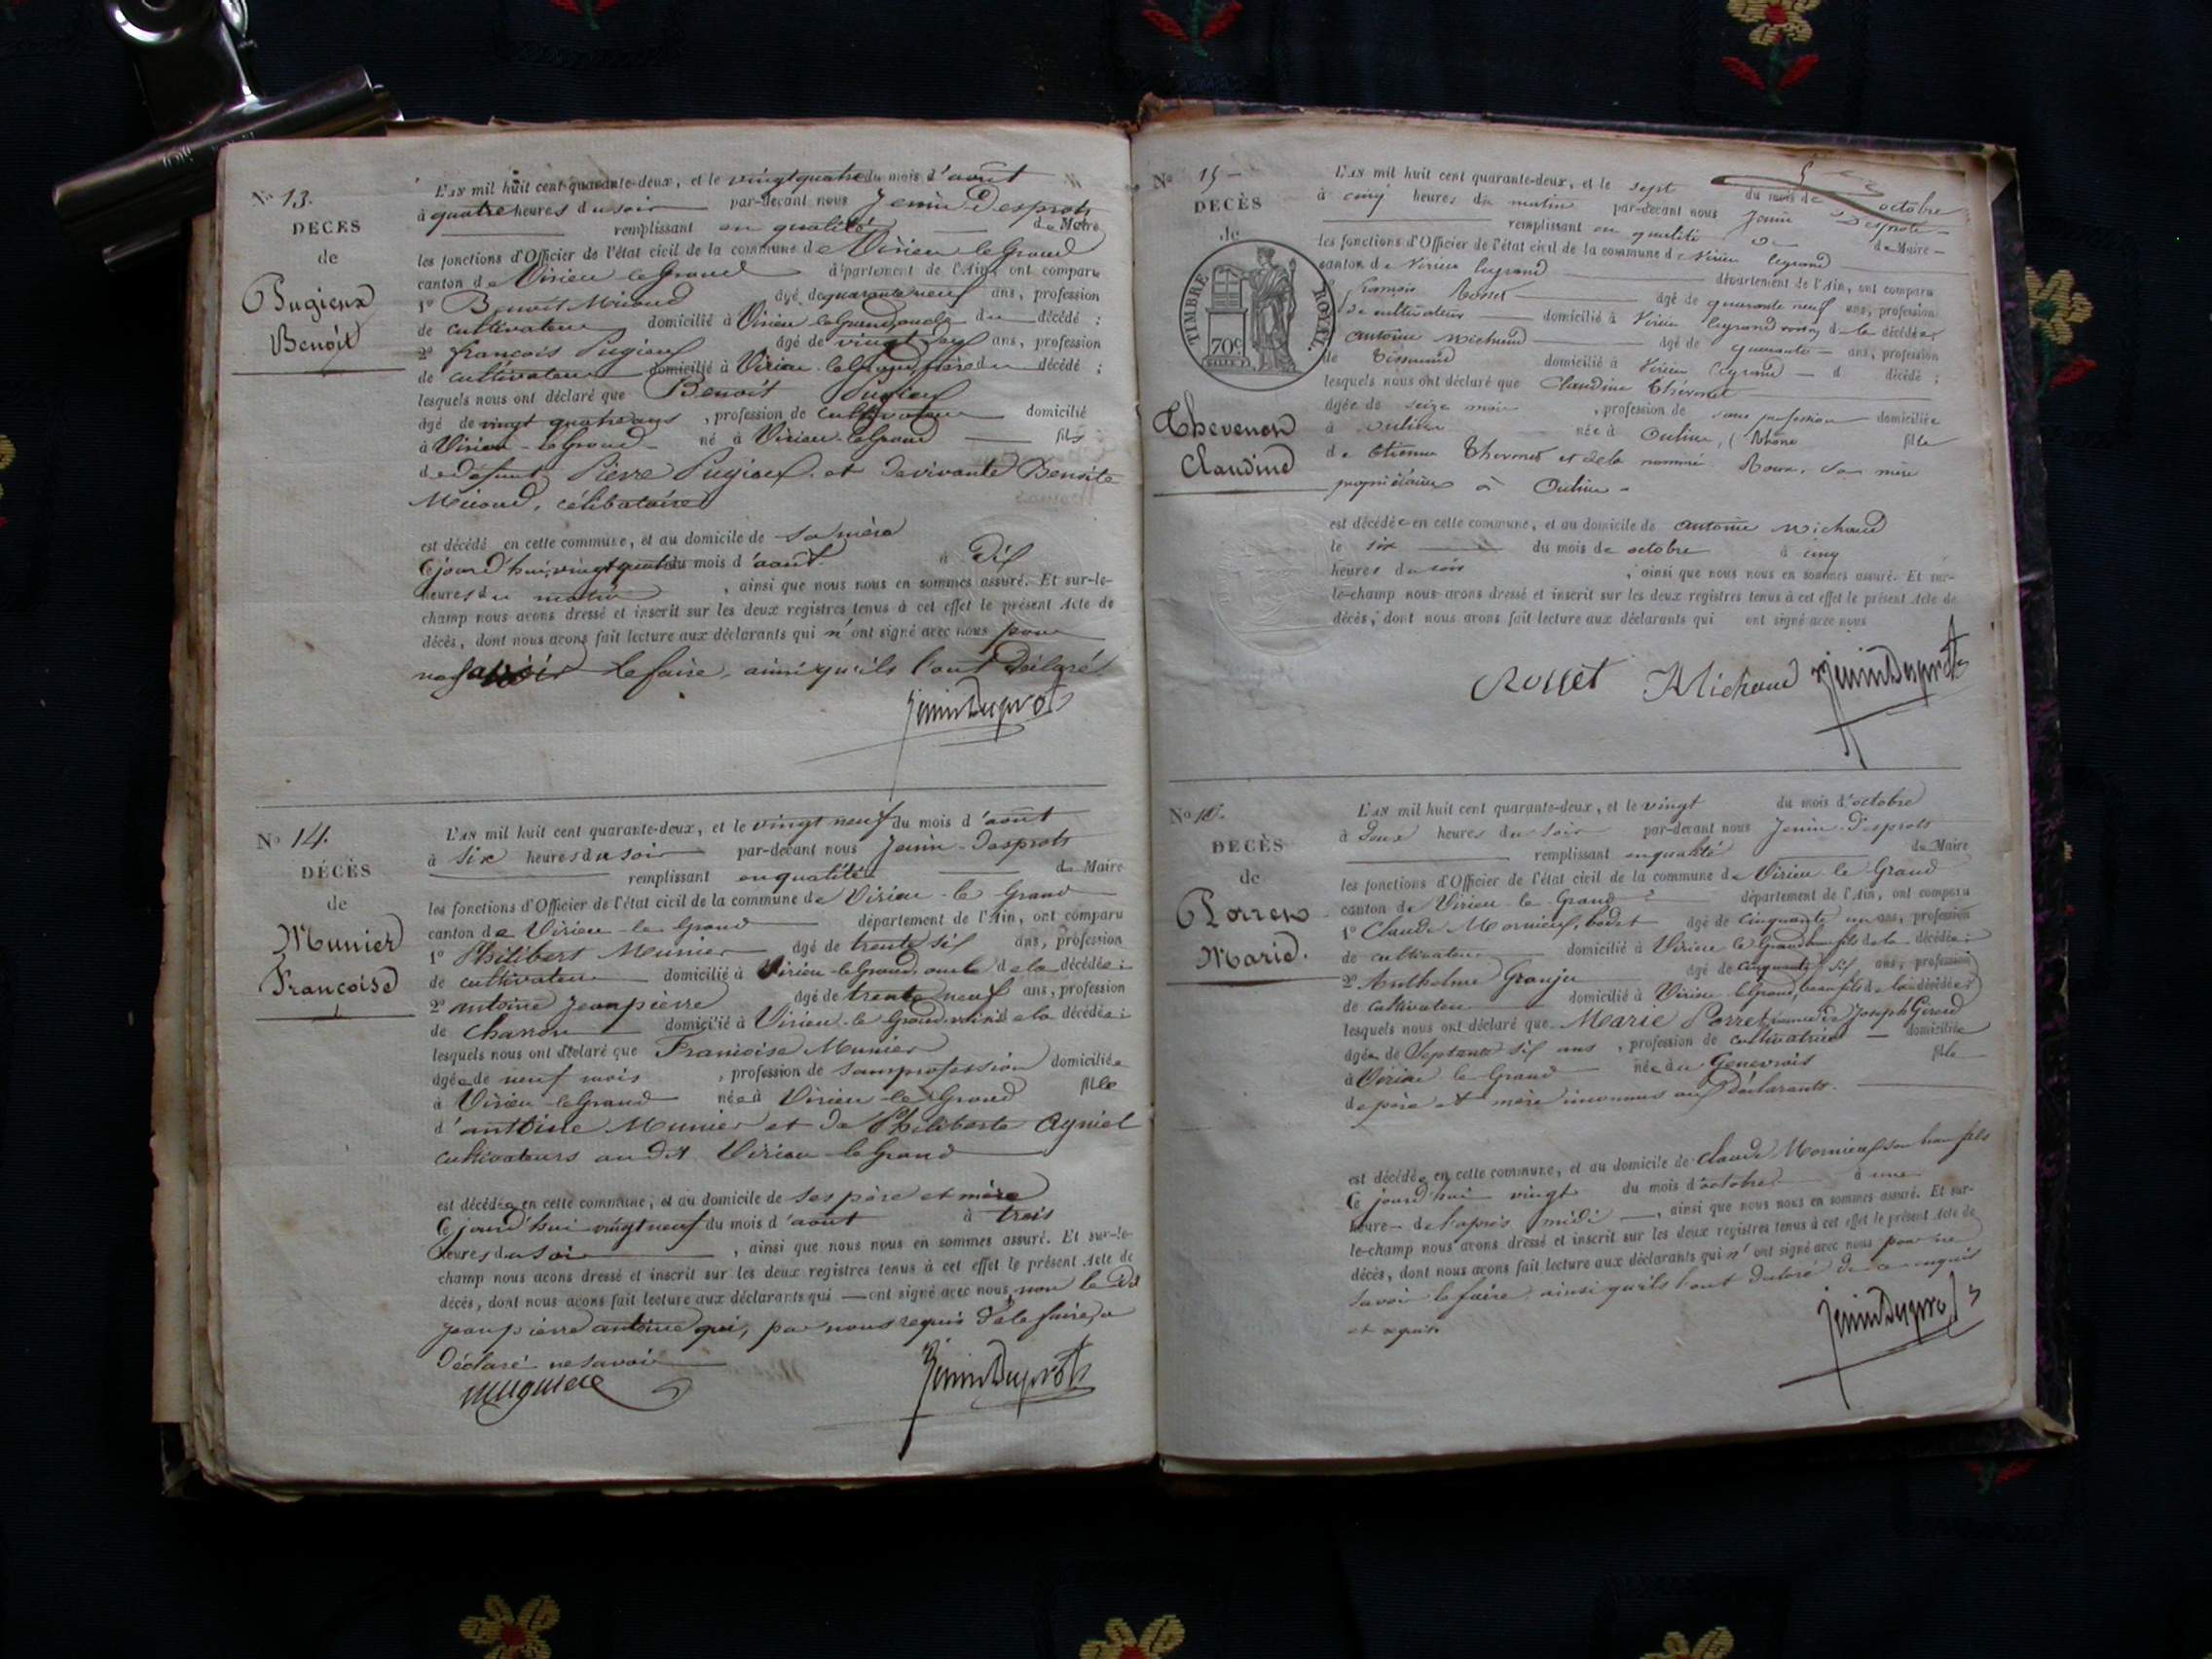 N° 13.
DÉCÈS
de
Pugieux
Benoît
L'AN mil huit cent quarante-deux, et le vingt quatre du mois d'août
à quatre heures du soir par-devant nous Jenin Desprots
remplissant en qualité de Maire
les fonctions d'Officier de l'état civil de la commune de Virieu le Grand
canton de Virieu le Grand département de l'Ain, ont comparu
1° Benoît Micoud âgé de quarante neuf ans, profession
de cultivateur domicilié à Virieu le Grand, oncle du décédé ;
2° françois Pugieux âgé de vingt ans, profession
de cultivateur domicilié à Virieu le Grand, frère du décédé ;
lesquels nous ont déclaré que Benoît Pugieux
âgé de vingt quatre ans, profession de cultivateur domicilié
à Virieu-le Grand né à Virieu-le Grand fils
de défunt Pierre Pugieux et de vivante Benoîte
Micoud, célibataire
est décédé en cette commune, et au domicile de sa mère
Ce jourd'hui, vingt quatre du mois d'août à Dix
heures du matin, ainsi que nous nous en sommes assuré. Et sur-le-
champ nous avons dressé et inscrit sur les deux registres tenus à cet effet le présent Acte de
décès, dont nous avons fait lecture aux déclarants qui n'ont signé avec nous pour
ne savoir le faire, ainsi qu'ils l'ont Déclaré
Jenin Desprots
N° 14.
DÉCÈS
de
Munier
Françoise
L'AN mil huit cent quarante-deux, et le vingt neuf du mois d'août
à six heures du soir par-devant nous Jenin-Desprots
remplissant en qualité de Maire
les fonctions d'Officier de l'état civil de la commune de Virieu-le Grand
canton de Virieu-le Grand département de l'Ain, ont comparu
1° Philibert Meunier âgé de trente six ans, profession
de cultivateur domicilié à Virieu-le Grand, oncle de la décédée ;
2° antoine Jeanpierre âgé de trente neuf ans, profession
de Charron domicilié à Virieu-le Grand voisin de la décédée ;
lesquels nous ont déclaré que Françoise Munier
âgée de neuf mois, profession de sans profession domiciliée
à Virieu-le Grand née à Virieu-le-Grand fille
d'antoine Munier et de Philiberte Ayniel
cultivateurs au dit Virieu-le Grand
est décédée en cette commune, et au domicile de ses père et mère
Ce jourd'hui vingt neuf du mois d'août à trois
heures du soir, ainsi que nous nous en sommes assuré. Et sur-le-
champ nous avons dressé et inscrit sur les deux registres tenus à cet effet le présent Acte de
décès, dont nous avons fait lecture aux déclarants qui — ont signé avec nous, non le dit
Jeanpierre antoine qui, par nous requis de le faire, a
Déclaré ne savoir
Jenin Desprots
N° 15
DÉCÈS
de
TIMBRE ROYAL.
70c
Thevenon
Claudine
L'AN mil huit cent quarante-deux, et le sept du mois de octobre
à cinq heures du matin par-devant nous Jenin Desprots
remplissant en qualité de Maire
les fonctions d'Officier de l'état civil de la commune de Virieu legrand
canton de Virieu legrand département de l'Ain, ont comparu
françois Rosset âgé de quarante neuf ans, profession
de cultivateur domicilié à Virieu legrand voisin de la décédée
antoine Michaud âgé de quarante ans, profession
de domicilié à Virieu legrand d décédé ;
lesquels nous ont déclaré que Claudine Thévenet
âgée de seize mois, profession de sans profession domiciliée
à Oulins née à Oulins, (Rhône fille
de Etienne Thevenet et de la nommée Roux, sa mère
propriétaires à Oulins
est décédée en cette commune, et au domicile de antoine Michaud
le six du mois de octobre à cinq
heures du soir, ainsi que nous nous en sommes assuré. Et sur-
le-champ nous avons dressé et inscrit sur les deux registres tenus à cet effet le présent Acte de
décès, dont nous avons fait lecture aux déclarants qui ont signé avec nous
Rosset Michaud Jenin Desprots
N° 16.
DÉCÈS
de
Porret
Marie.
L'AN mil huit cent quarante-deux, et le vingt du mois d'octobre
à Deux heures du soir par-devant nous Jenin-Desprots
remplissant en qualité de Maire
les fonctions d'Officier de l'état civil de la commune de Virieu le Grand
canton de Virieu-le-Grand département de l'Ain, ont comparu
1° Claude Mornieux, âgé de cinquante un ans, profession
de cultivateur domicilié à Virieu le Grand beau fils de la décédée ;
2° Anthelme Granju âgé de cinquante six ans, profession
de cultivateur domicilié à Virieu le Grand, beau fils de la décédée ;
lesquels nous ont déclaré que Marie Porret, femme de Joseph Girerd
âgée de Septante six ans, profession de cultivatrice domiciliée
à Virieu le Grand née au Genevrais fille
de père et mère inconnus aux Déclarants.
est décédée en cette commune, et au domicile de Claude Mornieux son beau fils
Ce jourd'hui vingt du mois d'octobre à une
heure de l'après midi, ainsi que nous nous en sommes assuré. Et sur-
le-champ nous avons dressé et inscrit sur les deux registres tenus à cet effet le présent Acte de
décès, dont nous avons fait lecture aux déclarants qui n'ont signé avec nous pour ne
savoir le faire, ainsi qu'ils l'ont déclaré de ce enquis
et requis
Jenin Desprots